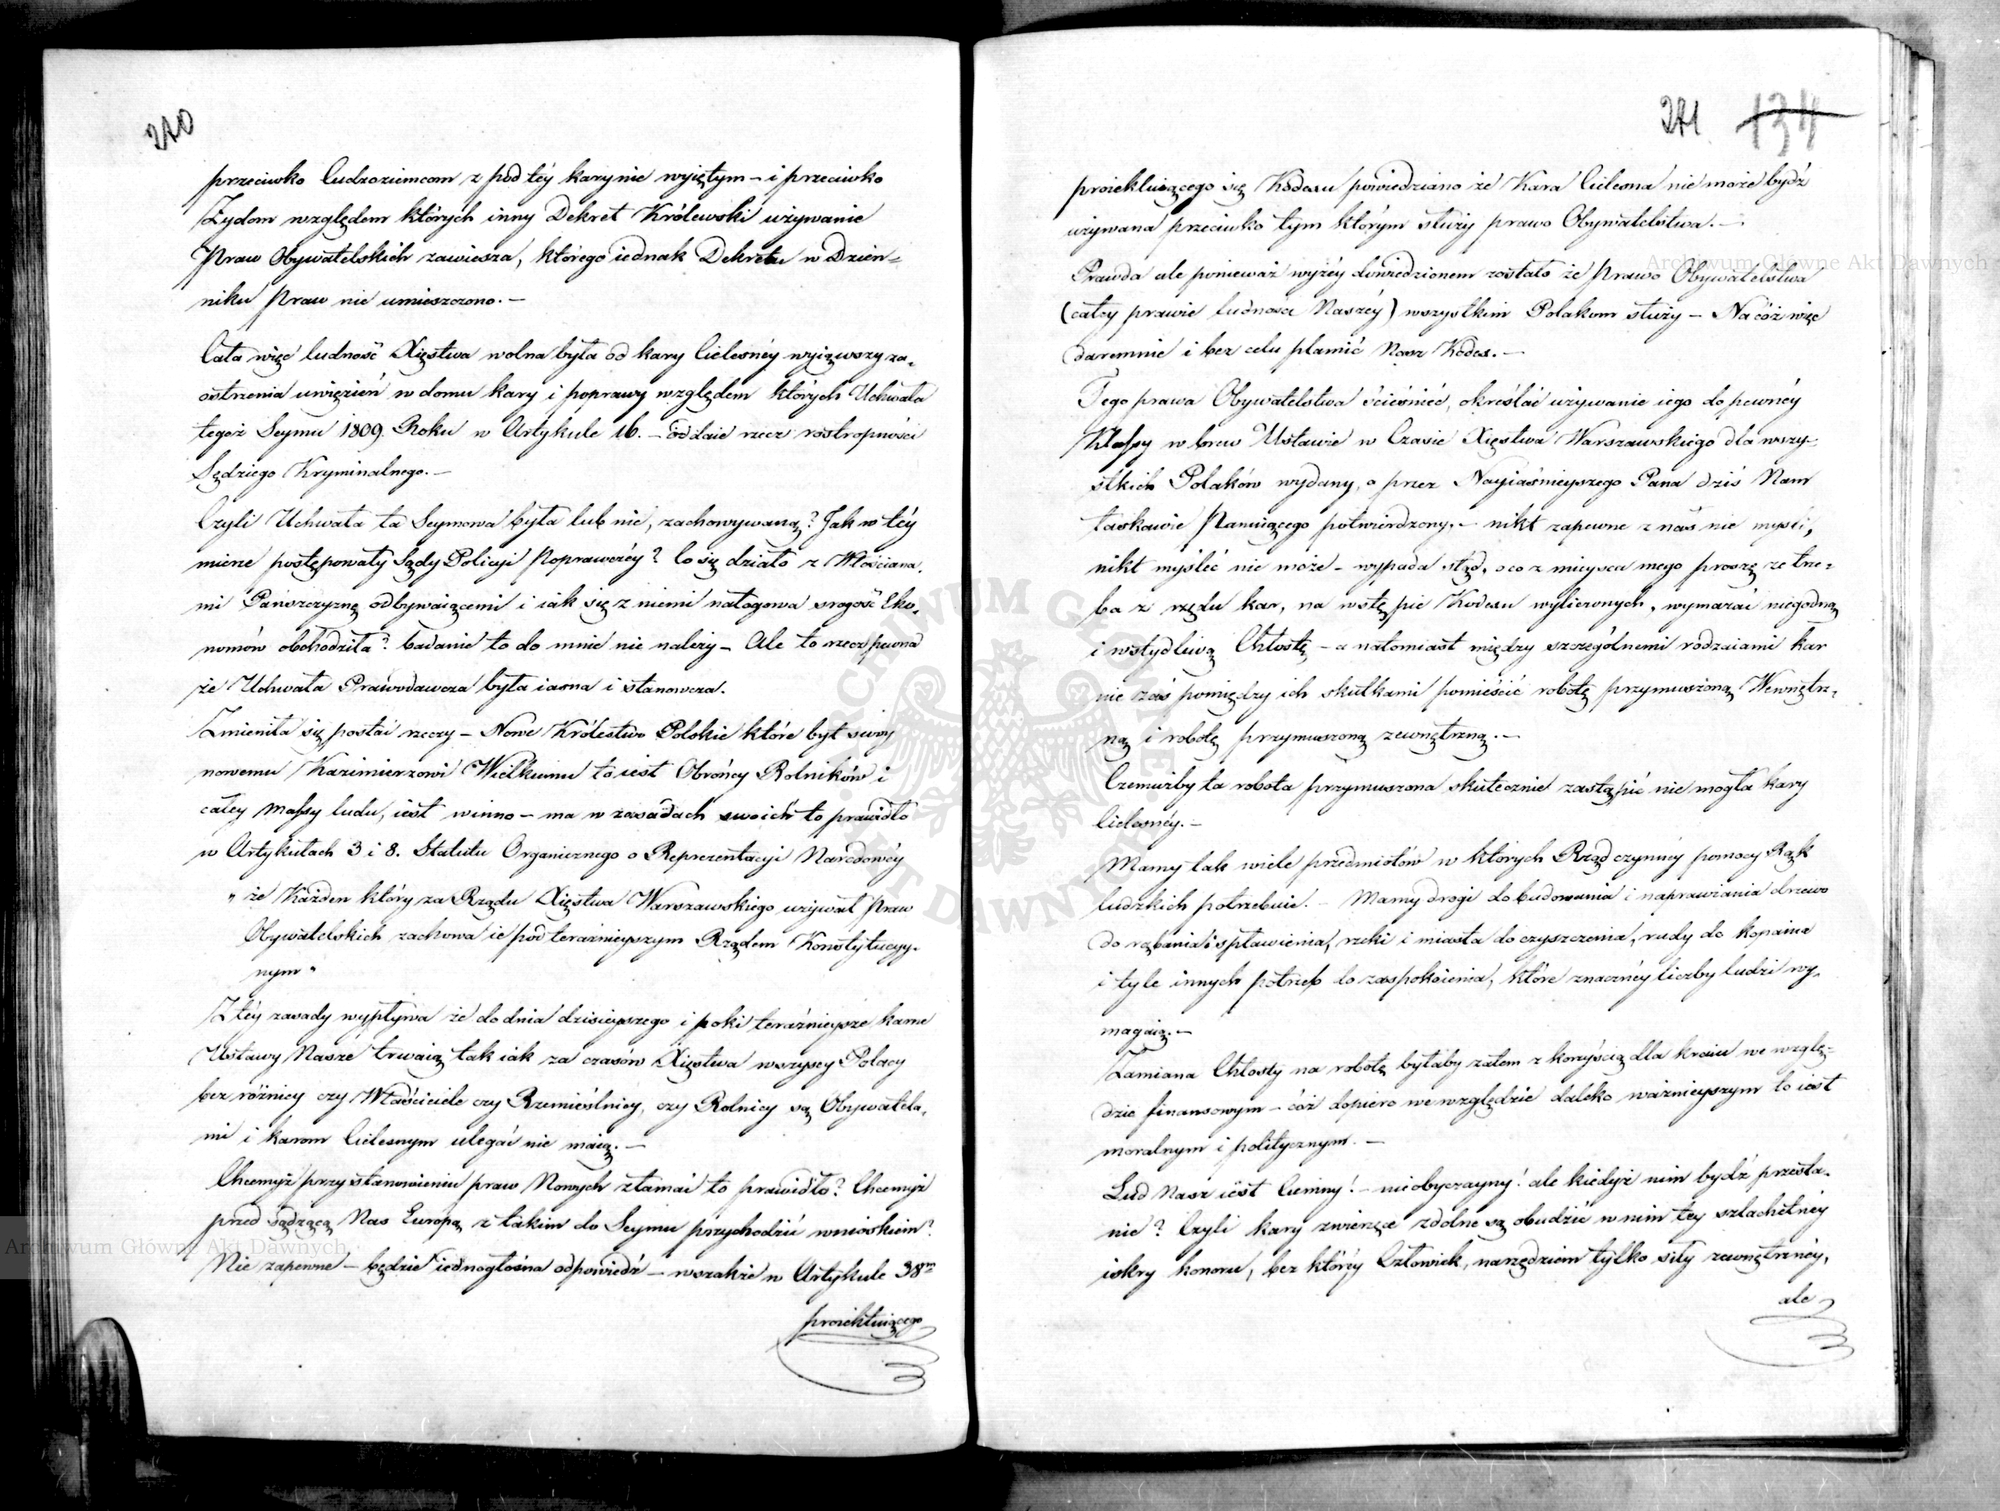 270
przeciwko Cudzoziemcom z pod téy kary nie wyiętym – i przeciwko
Żydom względem których inny Dekret Królewski używanie
Praw Obywatelskich zawiesza, którego iednak Dekretu w Dzien-
niku Praw nie umieszczono. –
Cała więc ludność Xięstwa wolna była od kary Cielesnéy wyiąwszy za-
ostrzenia uwięzień w domu kary i poprawy względem których Uchwała
tegoż Seymu 1809. Roku w Artykule 16. – oddaie rzecz rostropności
Sędziego Kryminalnego. –
Czyli Uchwała ta Seymowa była lub nie, zachowywaną? Jak w téy
mierze postępowały Sądy Policyi Poprawczéy? Co się działo z Włościana-
mi Pańszczyznę odbywaiącemi i iak się z niemi nałogowa srogość Eko-
nomów obchodziła? badanie to do mnie nie należy – Ale to rzecz pewna
że Uchwała Prawodawcza była iasna i stanowcza.
Zmieniła się postać rzeczy – Nowe Królestwo Polskie które byt swóy
nowemu Kazimierzowi Wielkiemu to iest Obrońcy Rolników i
całey massy ludu, iest winno – ma w zasadach swoich to prawidło
w Artykułach 3 i 8. Statutu Organicznego o Reprezentacyi Narodowéy
„ że Każden który za Rządu Xięstwa Warszawskiego używał Praw
Obywatelskich zachowa ie pod teraźnieyszym Rządem Konstytucyy-
nym “
Z téy zasady wypływa że do dnia dzisieyszego i póki teraźnieysze karne
Ustawy Nasze trwaią tak iak za czasów Xięstwa wszyscy Polacy
bez różnicy czy Właściciele czy Rzemieślnicy, czy Rolnicy są Obywatela-
mi i karom Cielesnym ulegać nie maią. –
Chcemyż przy stanowieniu praw Nowych złamać to prawidło? Chcemyż
przed sądzącą Nas Europą z takim do Seymu przychodzić wnioskiem?
Nie zapewne – będzie iednogłośna odpowiedź – wszakże w Artykule 38m
proiektuiącego
271 134
proiektuiącego się Kodexu powiedziano że Kara Cielesna nie może bydź
używana przeciwko tym którym służy prawo Obywatelstwa. –
Prawda ale ponieważ wyżéy dowiedzionem zostało że Prawo Obywatelstwa
(całéy prawie ludności Naszéy) wszystkim Polakom służy – Na cóż więc
daremnie i bez celu plamić Nasz Kodex. –
Tego prawa Obywatelstwa ścieśnić, określać używanie iego do pewnéy
Klassy wbrew Ustawie w Czasie Xięstwa Warszawskiego dla wszy-
stkich Polaków wydany, a przez Nayiaśnieyszego Pana dziś Nam
łaskawie Panuiącego potwierdzony, – nikt zapewne z nas nie myśli,
nikt myśléć nie może – wypada stąd, o co z mieysca mego proszę że trze-
ba z rzędu kar, na wstępie Kodexu wyliczonych, wymazać niegodną
i wstydliwą Chłostę – a natomiast między szczególnemi rodzaiami kar
nie zaś pomiędzy ich skutkami pomieścić robotę przymuszoną Wewnętrz-
ną i robotę przymuszoną zewnętrzną. –
Czemużby ta robota przymuszona skutecznie zastąpić nie mogła kary
Cielesnéy. –
Mamy tak wiele przedmiotów w których Rząd czynnéy pomocy Rąk
ludzkich potrzebuie. – Mamy drogi do budowania i naprawiania drzewo
do rąbania i spławienia, rzeki i miasta do czyszczenia, rudy do kopania
i tyle innych potrzeb do zaspokoienia, które znacznéy liczby ludzi wy-
magaią. –
Zamiana Chłosty na robotę byłaby zatem z korzyścią dla kraiu we wzglę-
dzie finansowym – cóż dopiero we względzie daleko ważnieyszym to iest
moralnym i politycznym. –
Lud Nasz iest Ciemny! – nieobyczayny! ale kiedyż nim bydź przesta-
nie? Czyli kary zwierzęce zdolne są obudzić w nim téy szlachetnéy
iskry honoru, bez któréy Człowiek, narzędziem tylko siły zewnętrznéy,
ale
Archiwum Główne Akt Dawnych
Archiwum Główne Akt Dawnych
ARCHIWUM GŁÓWNE AKT DAWNYCH